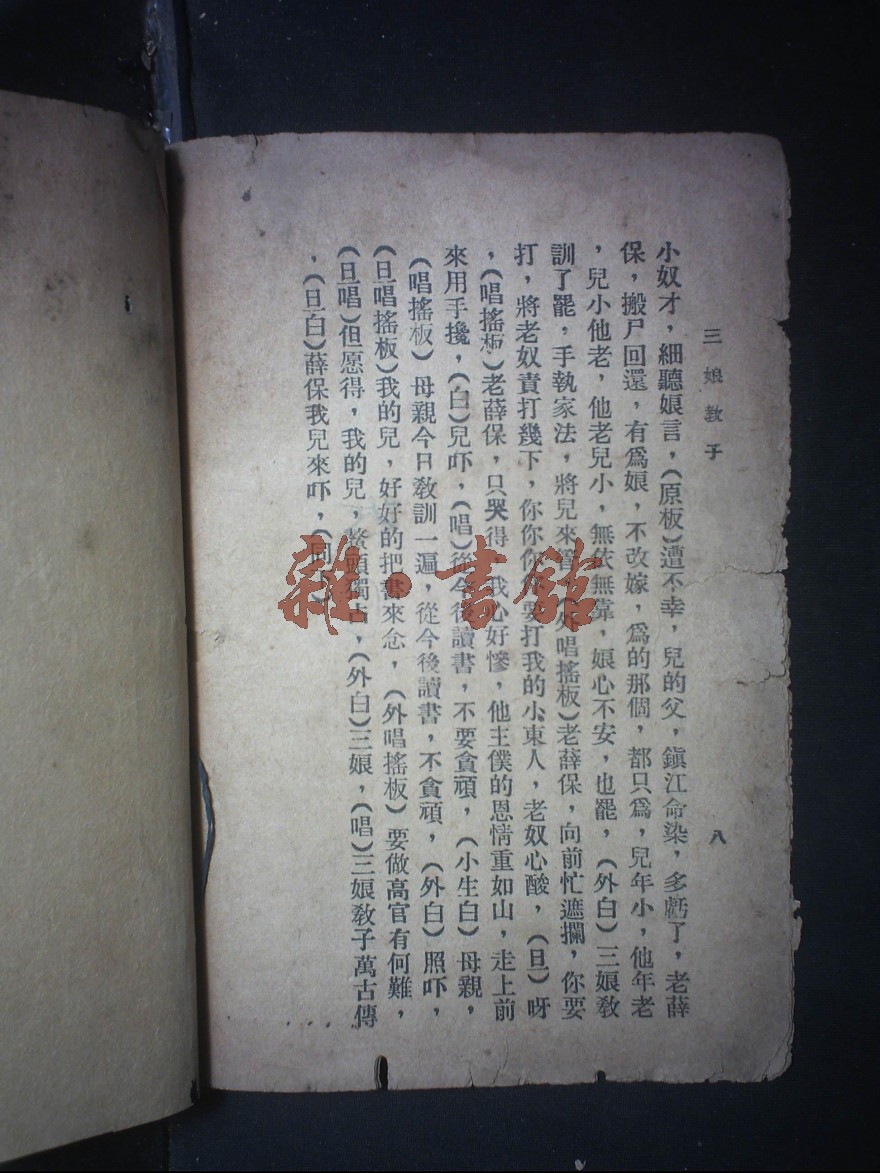 三娘教子
八
小奴才，細聽娘言，（原板）遭不幸，兒的父，鎮江命染，多虧了，老薛
保，搬尸回還，有爲娘，不改嫁，爲的那個，都只爲，兒年小，他年老
，兒小他老，他老兒小，無依無靠，娘心不安，也罷，（外白）三娘教
訓了罷，手執家法，將兒來管，（外唱搖板）老薛保，向前忙遮攔，你要
打，將老奴責打幾下，你你你你要打我的小東人，老奴心酸，（旦）呀
，（唱搖板）老薛保，只哭得，我心好慘，他主僕的恩情重如山，走上前
來用手攙，（白）兒吓，（唱）從今後讀書，不要貪頑，（小生白）母親，
（唱搖板）母親今日教訓一遍，從今後讀書，不貪頑，（外白）照吓，
（旦唱搖板）我的兒，好好的把書來念，（外唱搖板）要做高官有何難，
（旦唱）但愿得，我的兒，鰲頭獨占，（外白）三娘，（唱）三娘教子萬古傳
，（旦白）薛保我兒來吓，（同
雜·書館